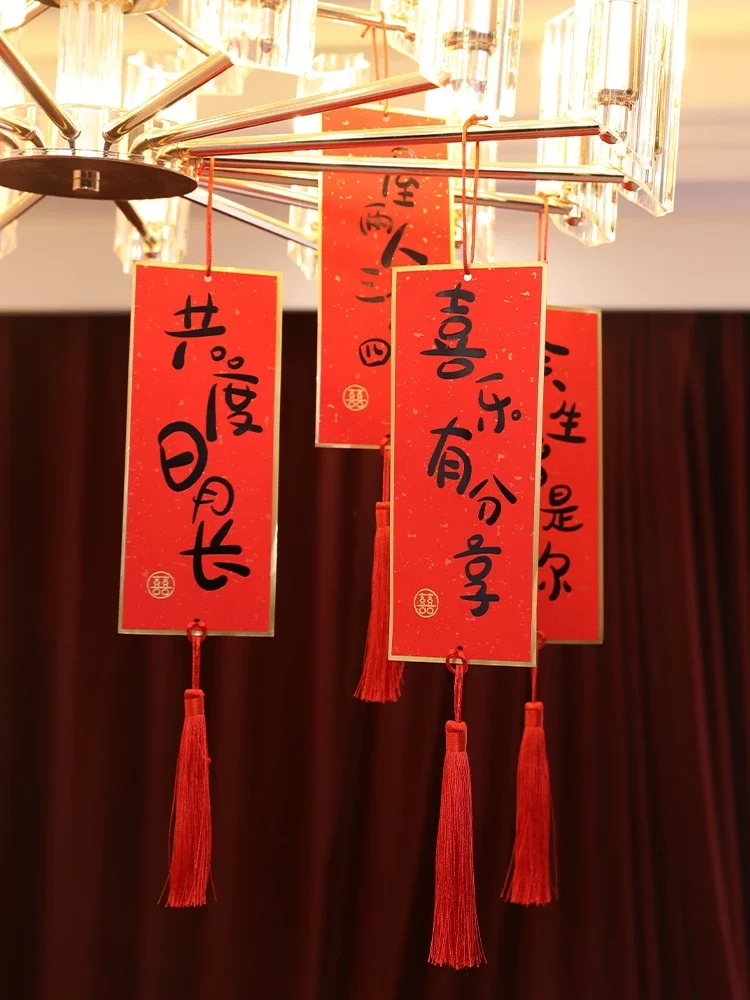 共度日月长
囍
屋两人三
四
囍
喜乐有分享
囍
余生
是你